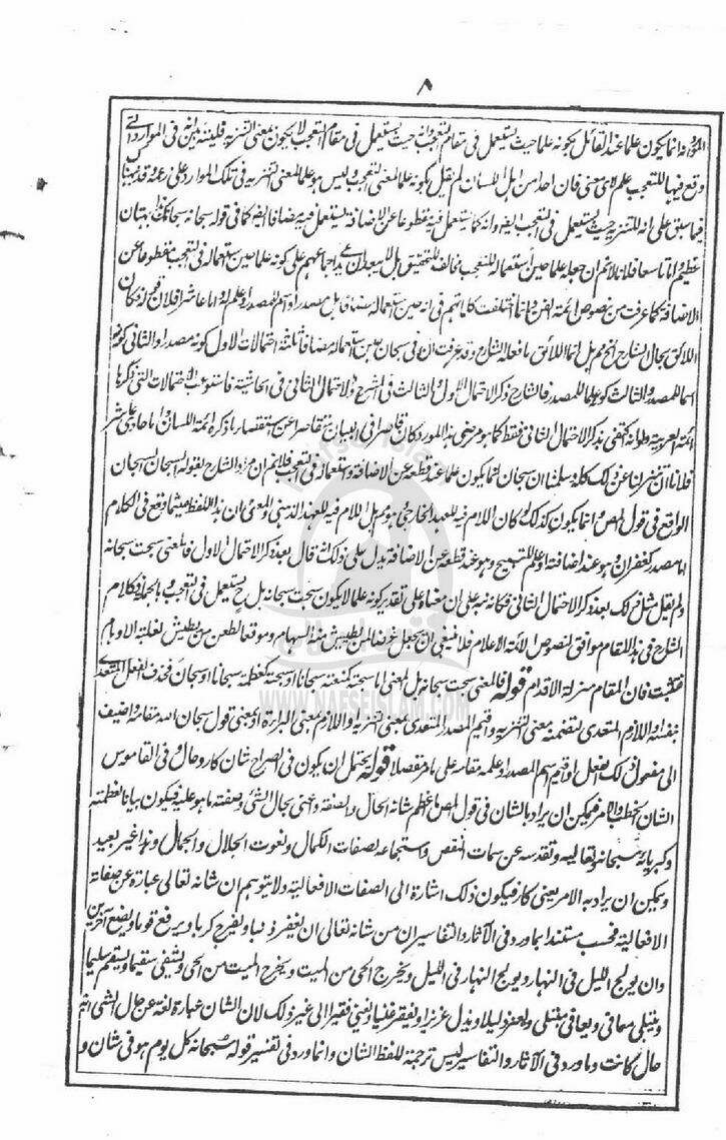 ٨
انما يكون علما عند القائل بكونه علما حيث يستعمل فى مقام التعجب حيث يستعمل فى مقام التعجب لا يكون بمعنى التنزيه فى الموارد التى
وقع فيها للتعجب علم لاى معنى فان احدا من اهل اللسان لم يقل بكونه علما لمعنى التعجب وليس هو علما لمعنى التنزيه فى تلك الموارد على زعمه وقد نبهنا
فيما سبق على انه للتنزيه حيث يستعمل فى التعجب ايضا وانه كما يستعمل فيه مقطوعا عن الاضافة يستعمل فيه مضافا ايضا كما فى قوله سبحانه سبحانك هذا بهتان
عظيم واما تاسعا فلانا لانم ان جعله علما حين استعماله للتعجب مخالف للتحقيق بل لا يبعد ان يدعى اجماعهم على كونه علما حين استعماله فى التعجب مقطوعا عن
الاضافة كما عرفت من نصوص ائمة الفن وانما اختلفت كلماتهم فى انه حين استعماله مضافا بل مصدر او اسم المصدر او علم له واما عاشرا فلان قوله وكان
اللائق بحال الشارح الخ بل انما اللائق ما فعله الشارح وقد عرفت ان فى سبحان حين استعماله مضافا ثلثة احتمالات الاول كونه مصدرا والثانى كونه
اسما للمصدر والثالث كونه علما للمصدر فالشارح ذكر الاحتمال الاول والثالث فى الشرح والاحتمال الثانى فى الحاشية فاستوعب الاحتمالات التى ذكرها
ائمة العربية ولو انه اكتفى بذكر الاحتمال الثانى فقط كما هو مرضى هذا المورد كان قاصرا فى البيان متقاصرا عن استقصاء ما ذكره ائمة اللسان واما حادى عشر
فلانا ان تنزلنا عن ذلك كله وسلمنا ان سبحان انما يكون علما عند قطعه عن الاضافة واستعماله فى التعجب فلانم ان مراد الشارح بقوله السبحان السبحان
الواقع فى قول المص وانما يكون كذلك لو كان اللام فيه للعهد الخارجى وهو مم بل اللام فيه للعهد الذهنى والمعنى ان هذا اللفظ حيثما وقع فى الكلام
اما مصدر كغفران وهو عند اضافته او علم للتسبيح وهو عند قطعه عن الاضافة يدل على ذلك انه قال بعد ذكر الاحتمال الاول فالمعنى سبحت سبحانه
ولم يقل مثل ذلك بعد ذكر الاحتمال الثانى فكانه نبه على ان معناه على تقدير كونه علما لا يكون سبحت سبحانه بل ح يستعمل فى التعجب وبالجملة فكلام
الشارح فى هذا المقام موافق لنصوص الائمة الاعلام فلا ينبغى ان يجعل غرضا لمن يطيش منه السهام وموقعا لطعن من يطيش لغلبة الاوهام
فتثبت فان المقام منزلة الاقدام قوله فالمعنى سبحت سبحانه بل المعنى اسبحه سبحانا او سبحان فحذف الفعل المتعدى
بنفسه او اللازم المتعدى لتضمنه معنى التنزيه واقيم المصدر المتعدى بمعنى التنزيه او اللازم بمعنى البراءة او بمعنى قول سبحان الله مقامه واضيف
الى مفعول ذلك الفعل او اقيم اسم المصدر او علمه مقامه على ما مر مفصلا قوله يحتمل ان يكون فى الصراح شان كار وحال وفى القاموس
الشان الخطب والامر فيمكن ان يراد بالشان فى قول المص ما اعظم شانه الحال والصفة وهى حال الشئ وصفته ما هو عليه فيكون بيانا لعظمته
وكبريائه سبحانه وتعاليه وتقدسه عن سمات النقص واستجماعه لصفات الكمال ونعوت الجلال والجمال وهذا غير بعيد
ويمكن ان يراد به الامر يعنى كار فيكون ذلك اشارة الى الصفات الافعالية ولا يتوهم ان شانه تعالى عبارة عن صفاته
الافعالية فحسب مستندا بما ورد فى الآثار والتفاسير ان من شانه تعالى ان يغفر ذنبا ويفرج كربا ويرفع قوما ويضع آخرين
وان يولج الليل فى النهار ويولج النهار فى الليل ويخرج الحى من الميت ويخرج الميت من الحى ويشفى سقيما ويسقم سليما
ويبتلى معافى ويعافى مبتلى ويعز ذليلا ويذل عزيزا ويفقر غنيا ويغنى فقيرا الى غير ذلك لان الشان عبارة لغة عن حال الشئ اية
حال كانت وما ورد فى الآثار والتفاسير ليس ترجمة للفظ الشان وانما ورد فى تفسير قوله سبحانه كل يوم هو فى شان و
WWW.NAFSEISLAM.COM